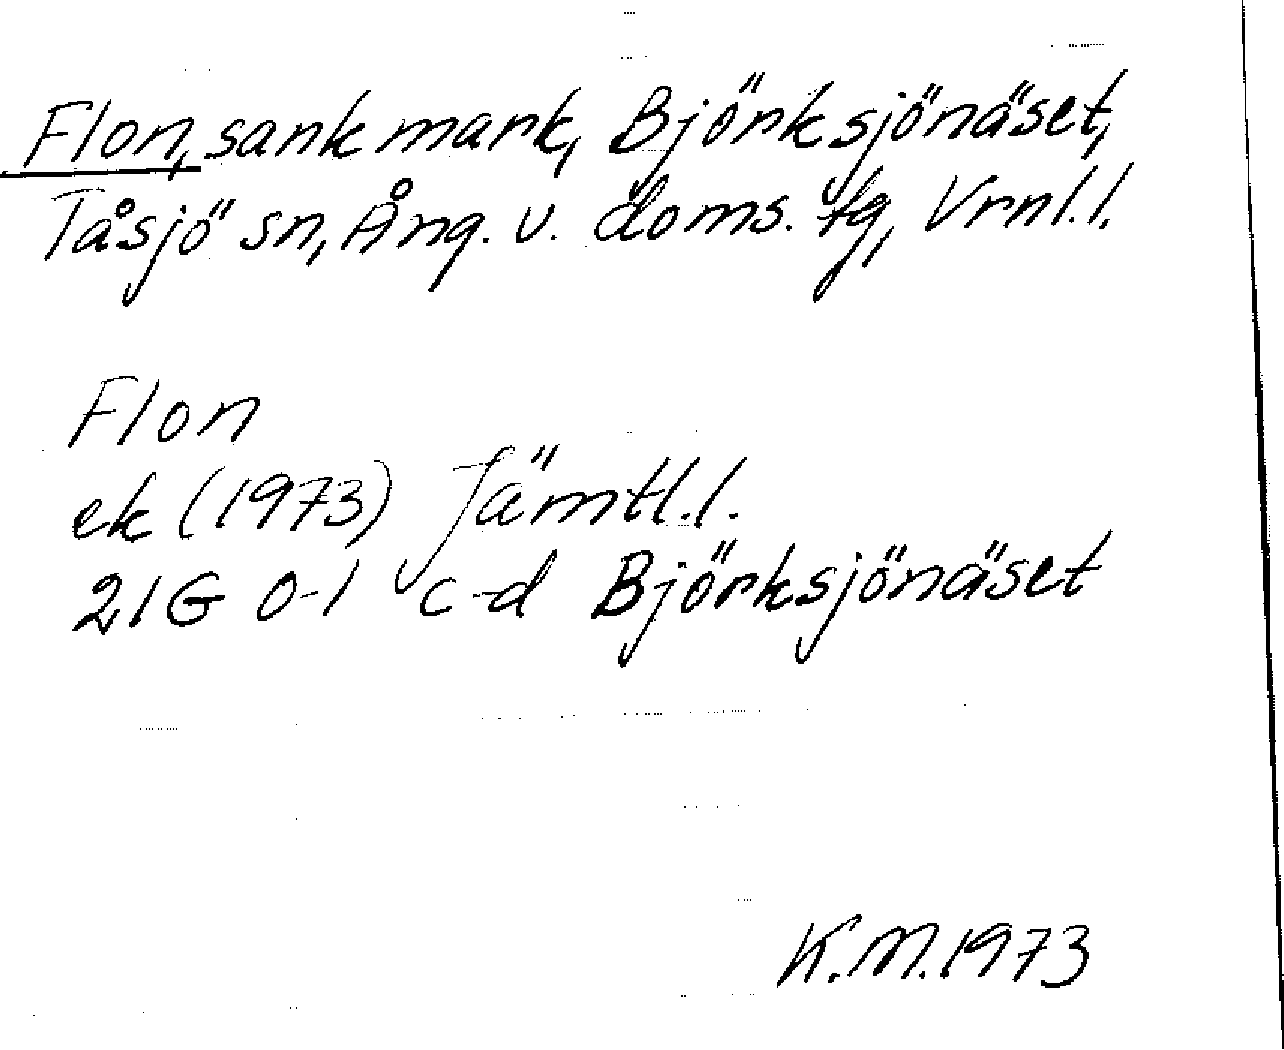 Flon, sank mark, Björksjönäset,
Tåsjö sn, Ång. v. doms. tg, Vrnl.l.
Flon
ek (1973) Jämtl.l.
21G 0-1 c-d Björksjönäset
K.M.1973